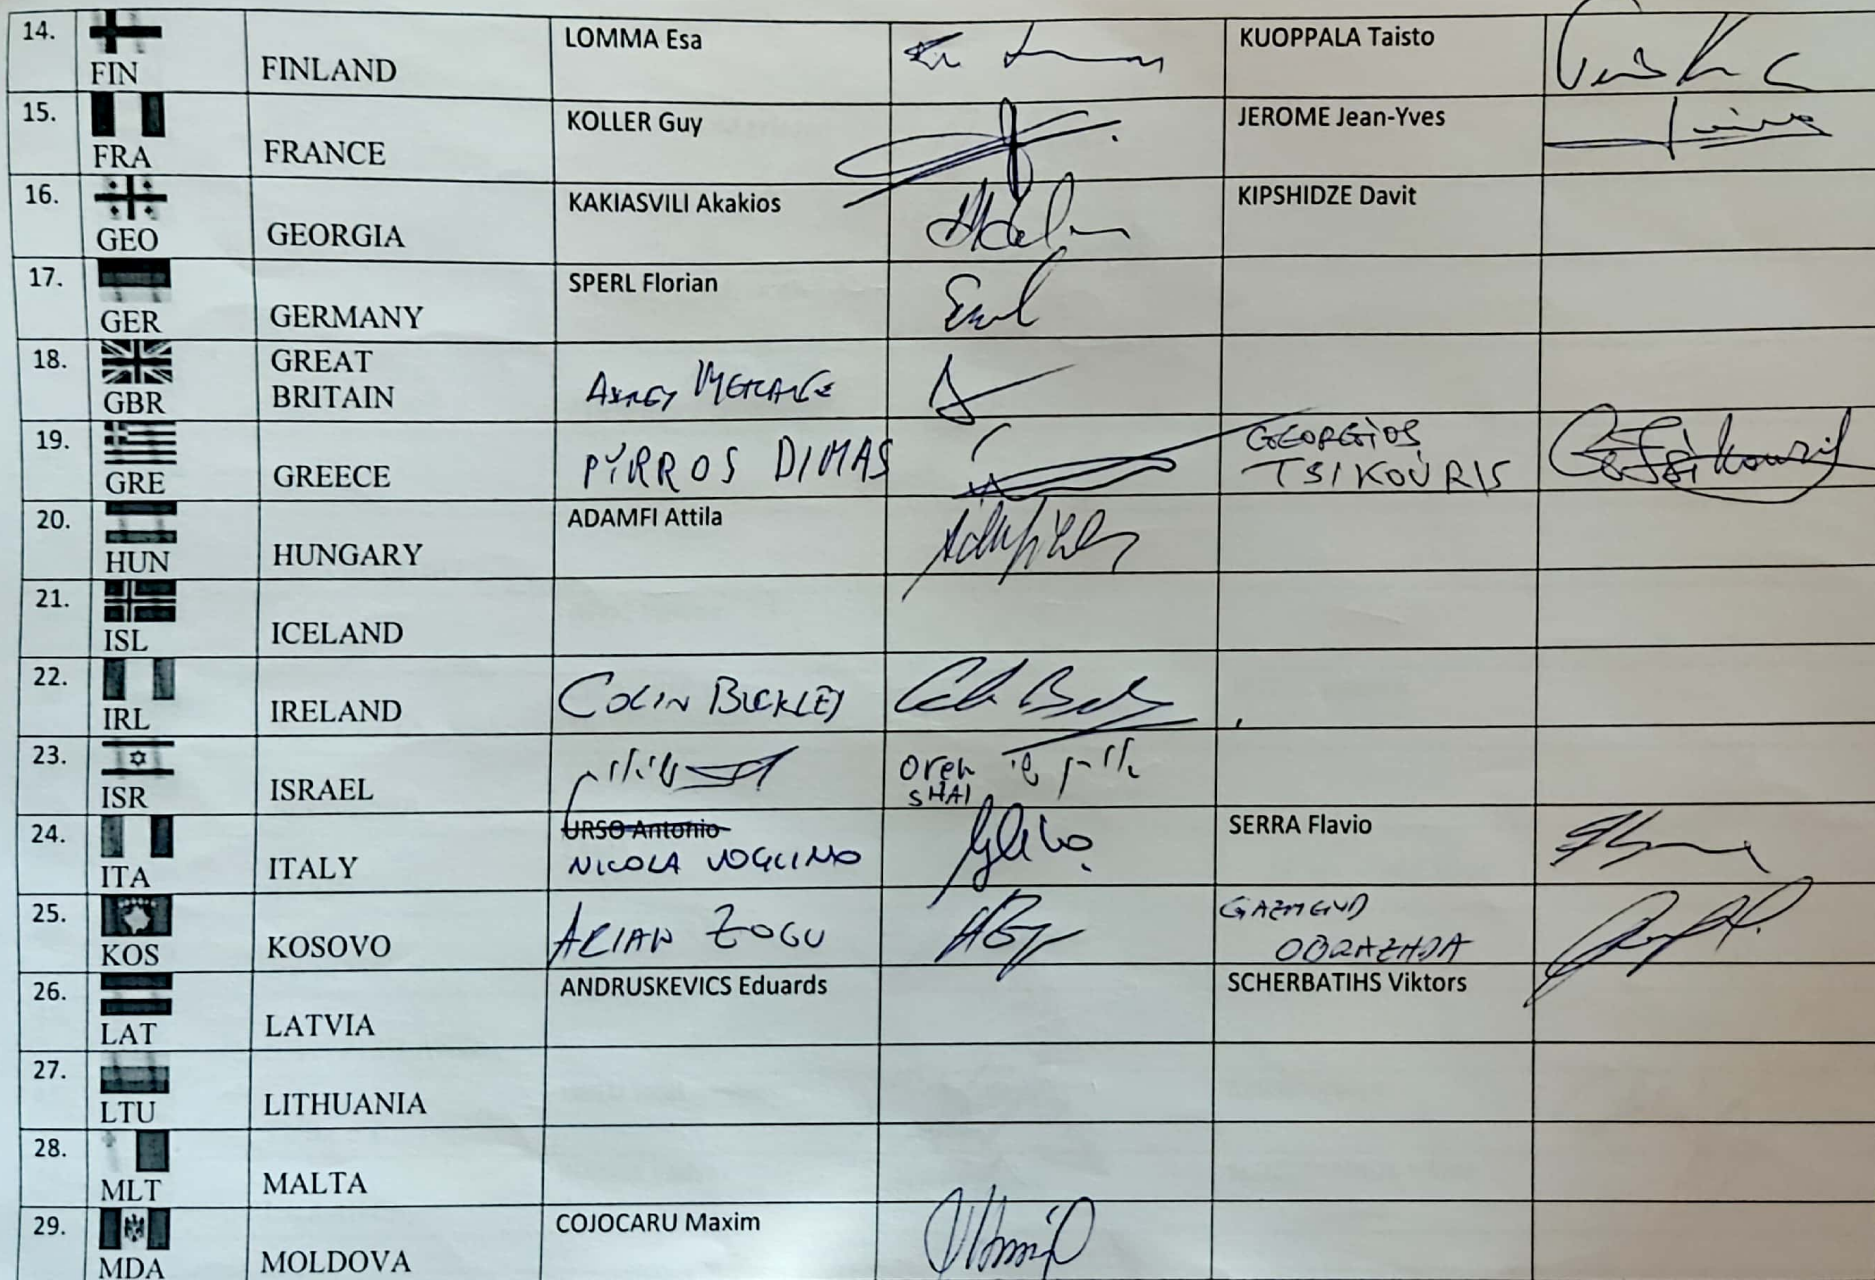 14. FIN FINLAND LOMMA Esa KUOPPALA Taisto
15. FRA FRANCE KOLLER Guy JEROME Jean-Yves
16. GEO GEORGIA KAKIASVILI Akakios KIPSHIDZE Davit
17. GER GERMANY SPERL Florian
18. GBR GREAT
BRITAIN
19. GRE GREECE PYRROS DIMAS GEORGIOS
TSIKOURIS
20. HUN HUNGARY ADAMFI Attila
21. ISL ICELAND
22. IRL IRELAND COLIN BUCKLEY
23. ISR ISRAEL Oren
SHAI
24. ITA ITALY URSO Antonio SERRA Flavio
NICOLA VOGLINO
25. KOS KOSOVO ARIAN ZOGU GAZMEND
26. LAT LATVIA ANDRUSKEVICS Eduards SCHERBATIHS Viktors
27. LTU LITHUANIA
28. MLT MALTA
29. MDA MOLDOVA COJOCARU Maxim